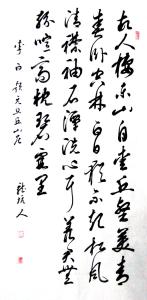 故人棲东山自爱丘壑美青
春卧空林白日犹不起松风
清襟袖石潭洗心耳羡君无
纷喧高枕碧霞里
李白题元丹丘山居